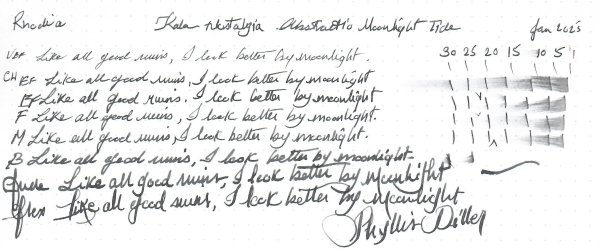 Rhodia Kala Nostalgia Abstractio Moonlight Tide Jan 2025
30 25 20 15 10 5 1
VEF Like all good ruins, I look better by moonlight.
CH EF Like all good ruins, I look better by moonlight
EF Like all good ruins, I look better by moonlight
F Like all good ruins, I look better by moonlight.
M Like all good ruins, I look better by moonlight.
B Like all good ruins, I look better by moonlight.
Fude Like all good ruins, I look better by moonlight
Flex Like all good ruins, I look better by moonlight
Phyllis Diller